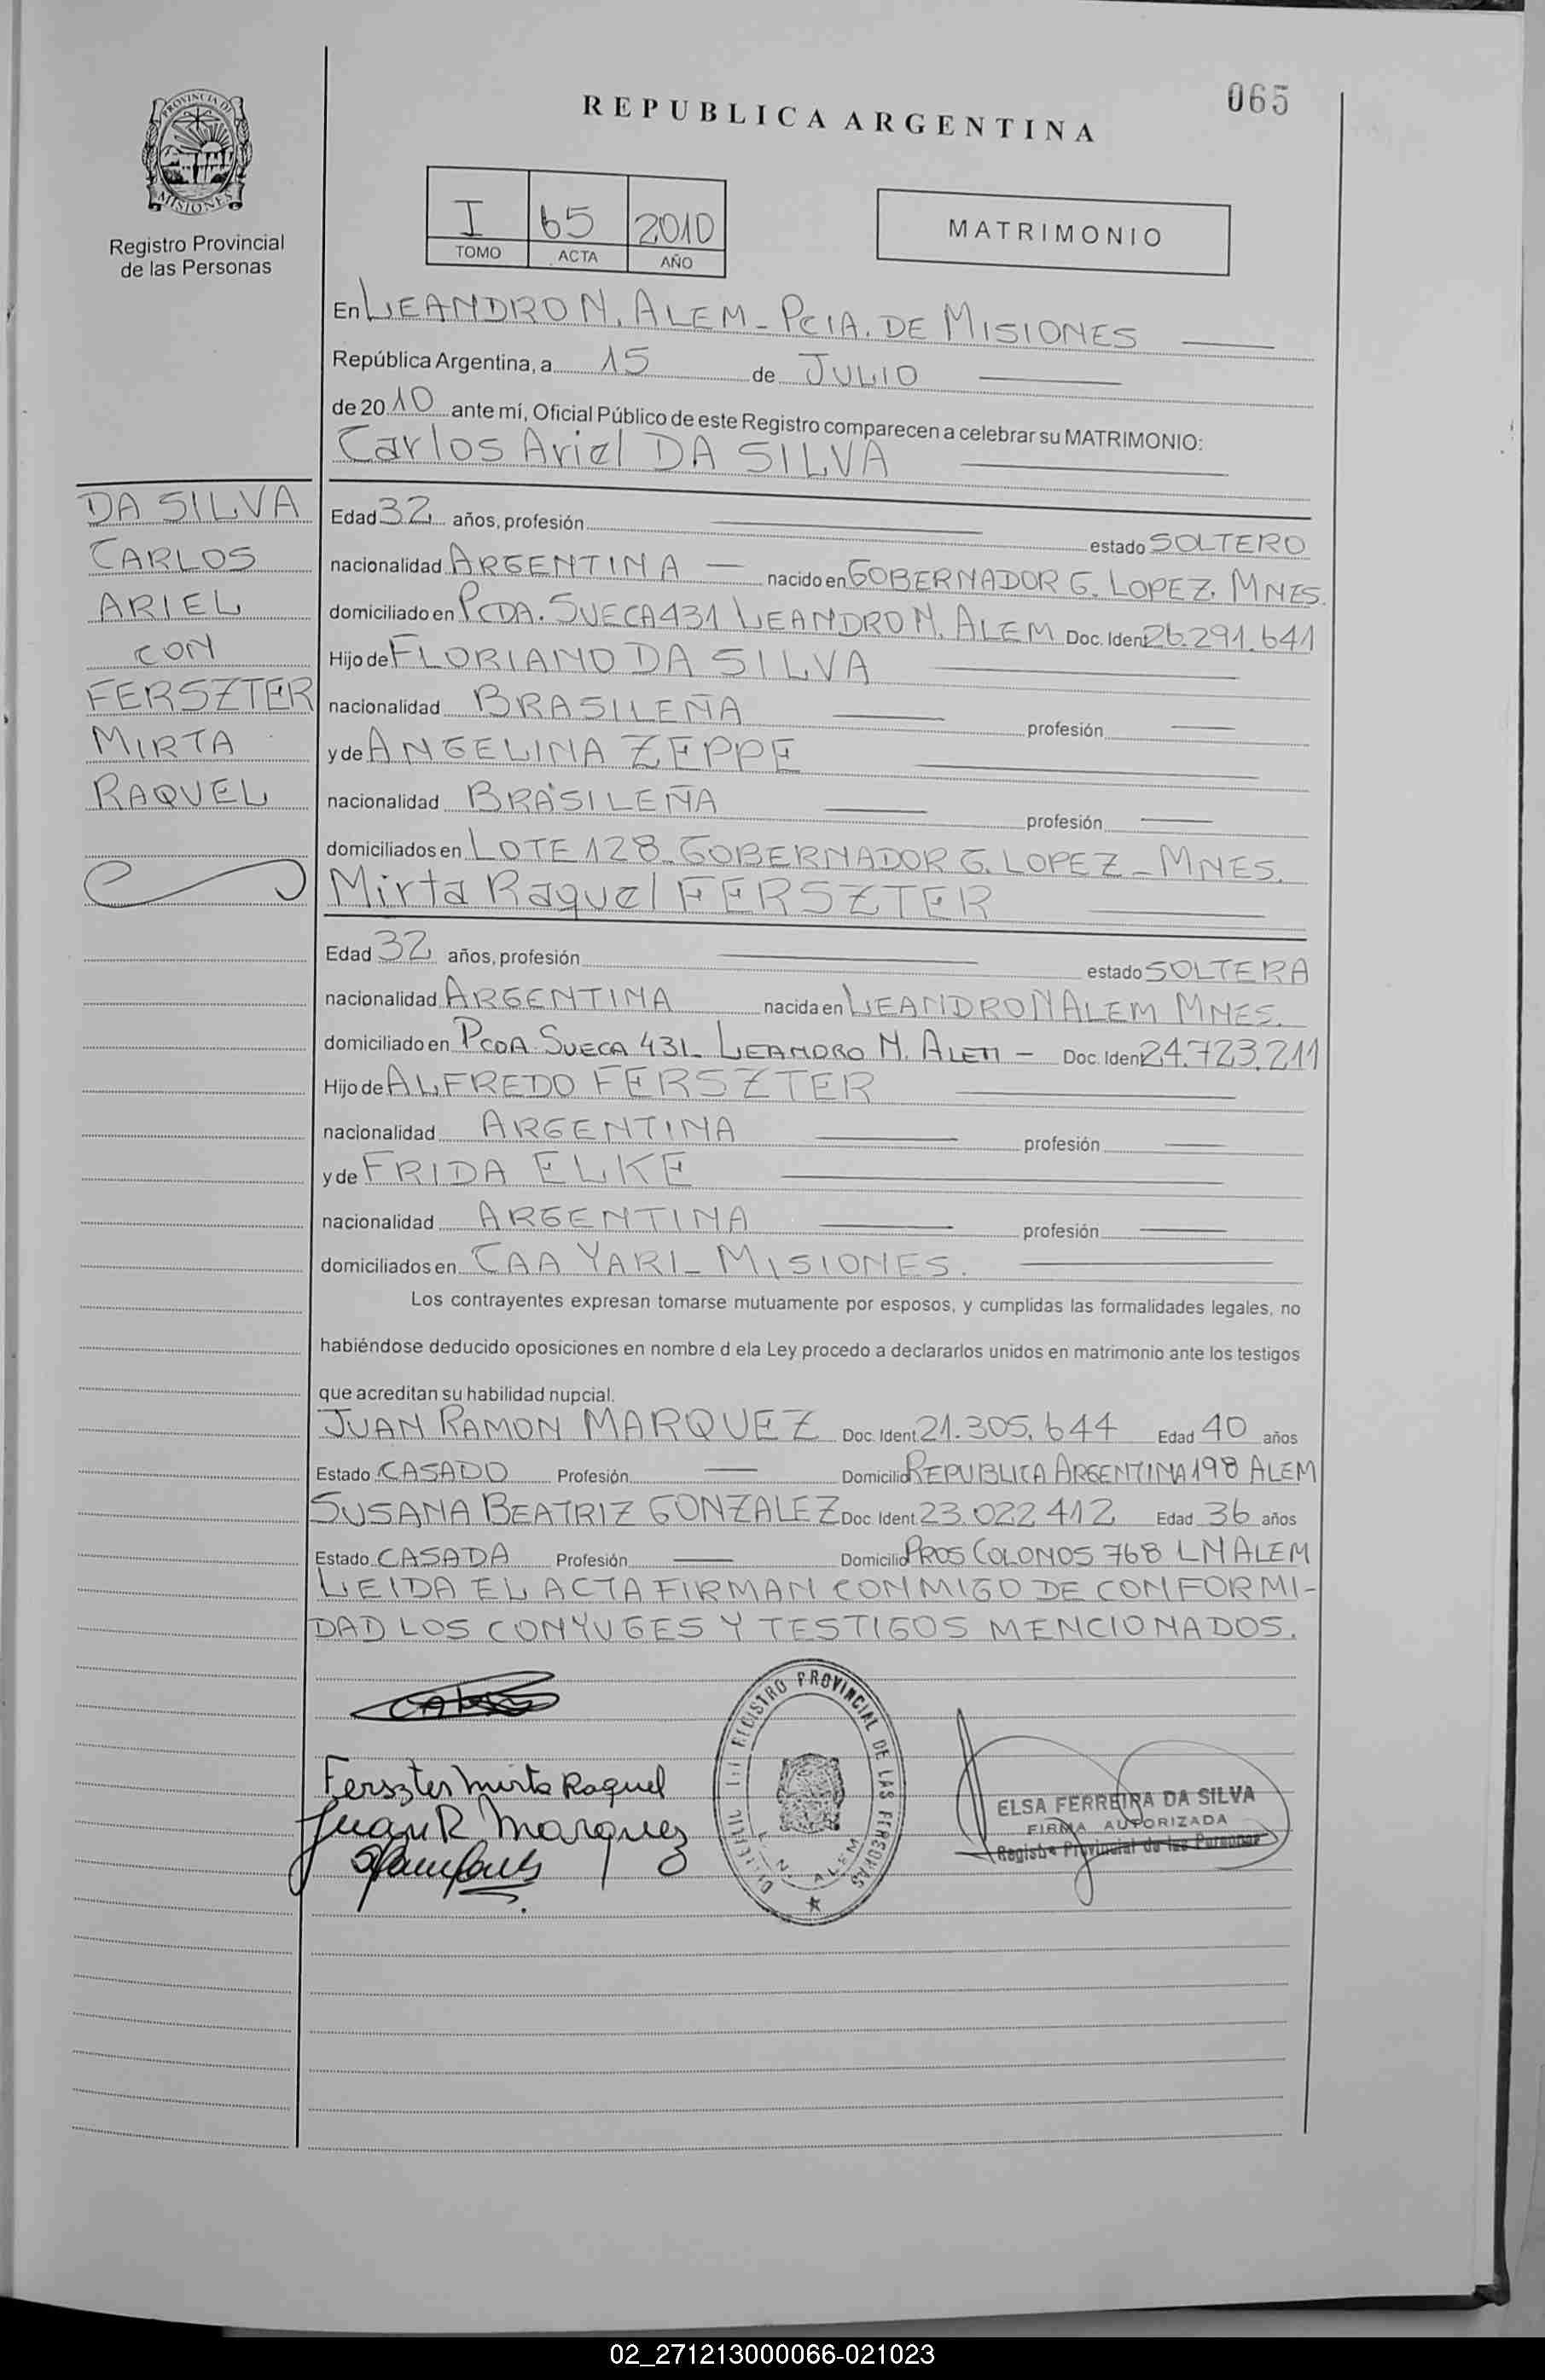 065
REPUBLICA ARGENTINA
PROVINCIA DE
MISIONES
Registro Provincial
de las Personas
I 65 2010
TOMO ACTA AÑO
MATRIMONIO
En LEANDRO N. ALEM - PCIA. DE MISIONES
República Argentina, a 15 de JULIO
de 2010 ante mí, Oficial Público de este Registro comparecen a celebrar su MATRIMONIO:
Carlos Ariel DA SILVA
DA SILVA
CARLOS
ARIEL
CON
FERSZTER
MIRTA
RAQUEL
Edad 32 años, profesión estado SOLTERO
nacionalidad ARGENTINA — nacido en GOBERNADOR G. LOPEZ. MNES.
domiciliado en PCDA. SUECA 431 LEANDRO N. ALEM Doc. Ident 26.291.641
Hijo de FLORIANO DA SILVA
nacionalidad BRASILEÑA profesión
y de ANGELINA ZEPPE
nacionalidad BRASILEÑA profesión
domiciliados en LOTE 128 - GOBERNADOR G. LOPEZ - MNES.
Mirta Raquel FERSZTER
Edad 32 años, profesión estado SOLTERA
nacionalidad ARGENTINA nacida en LEANDRO N ALEM MNES.
domiciliado en PCDA. SUECA 431 - LEANDRO N. ALEM - Doc. Ident 24.723.211
Hijo de ALFREDO FERSZTER
nacionalidad ARGENTINA profesión
y de FRIDA ELKE
nacionalidad ARGENTINA profesión
domiciliados en CAA YARI - MISIONES.
Los contrayentes expresan tomarse mutuamente por esposos, y cumplidas las formalidades legales, no
habiéndose deducido oposiciones en nombre d ela Ley procedo a declararlos unidos en matrimonio ante los testigos
que acreditan su habilidad nupcial.
JUAN RAMON MARQUEZ Doc. Ident. 21.305.644 Edad 40 años
Estado CASADO Profesión — Domicilio REPUBLICA ARGENTINA 198 ALEM
SUSANA BEATRIZ GONZALEZ Doc. Ident. 23.022.412 Edad 36 años
Estado CASADA Profesión — Domicilio PROS COLONOS 768 L N ALEM
LEIDA EL ACTA FIRMAN CONMIGO DE CONFORMI-
DAD LOS CONYUGES Y TESTIGOS MENCIONADOS.
Ferszter Mirta Raquel
Juan R Marquez
REGISTRO PROVINCIAL DE LAS PERSONAS
L. N. ALEM
ELSA FERREIRA DA SILVA
FIRMA AUTORIZADA
Registro Provincial de las Personas
02_271213000066-021023